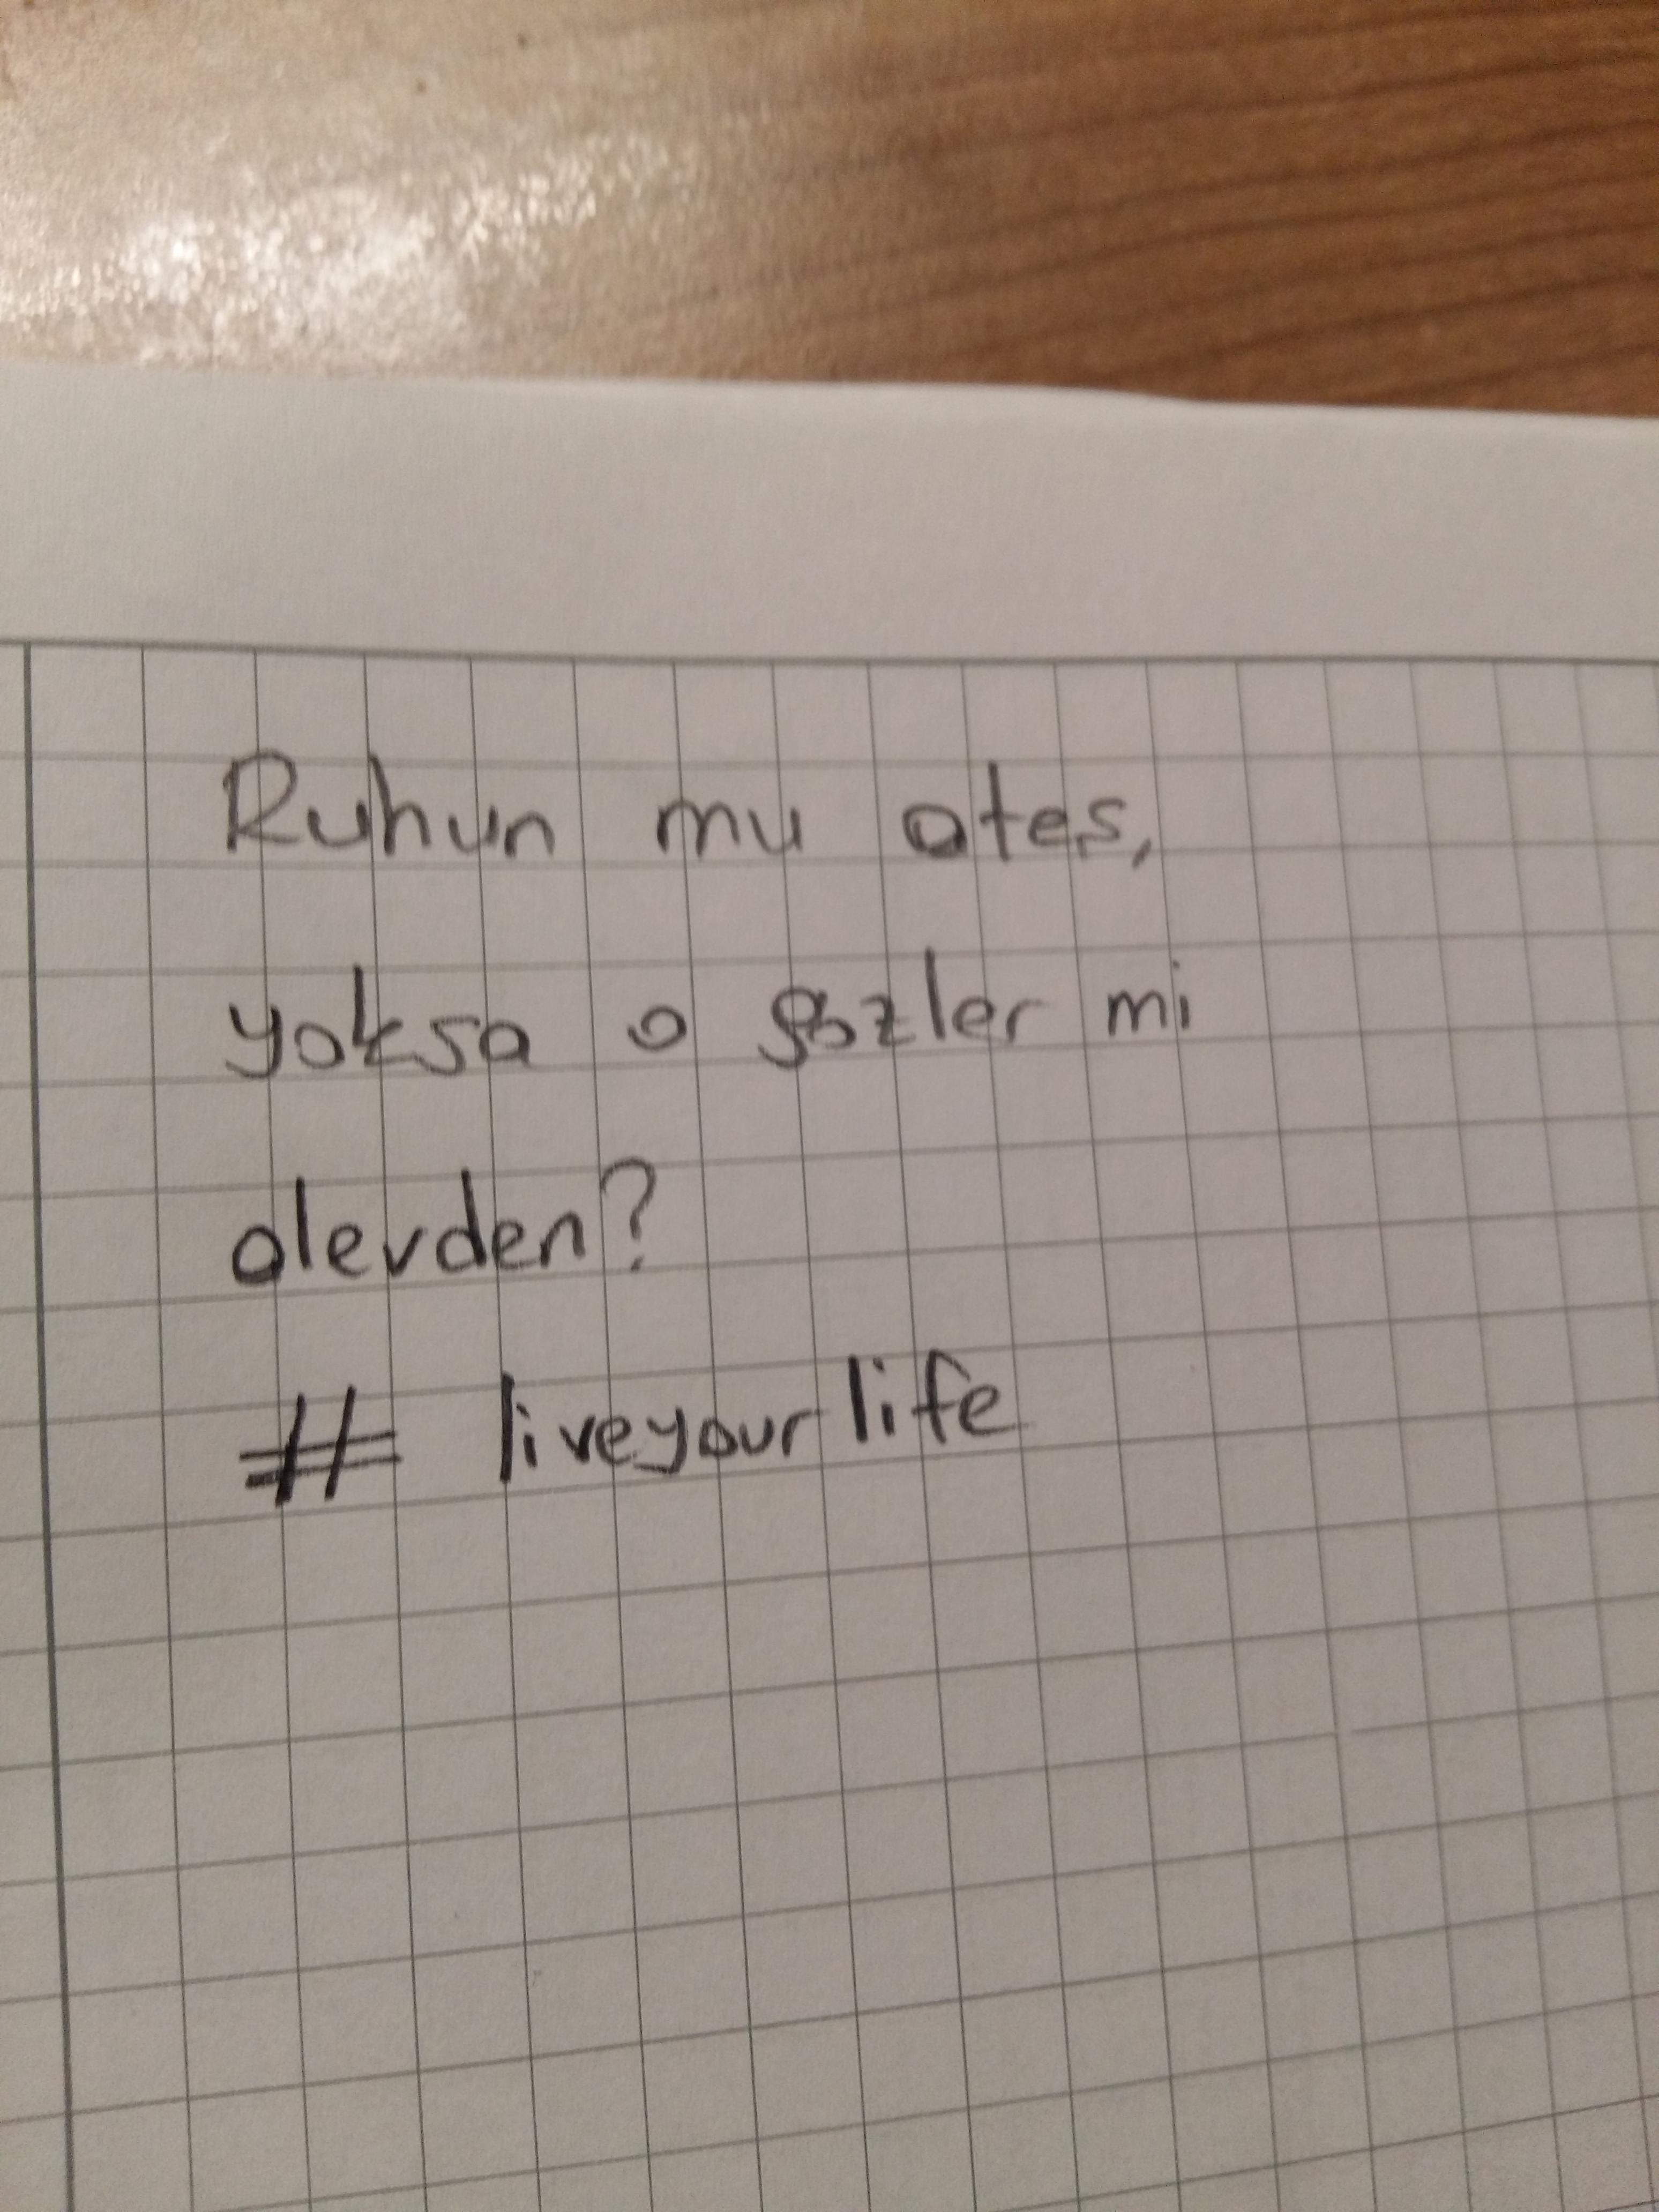 Ruhun mu ateş,
yoksa o gözler mi
alevden?
# liveyourlife